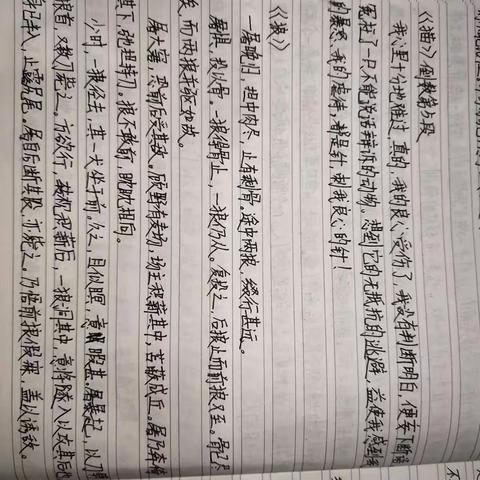 《猫》倒数第5段
我心里十分地难过,真的,我的良心受伤了,我没有判断明白,便妄下断语
冤枉了一只不能说话辩诉的动物。想到它的无抵抗的逃避,益使我感到我
的暴怒、我的虐待,都是针,刺我良心的针!
《狼》
一屠晚归,担中肉尽,止有剩骨。途中两狼,缀行甚远。
屠惧,投以骨。一狼得骨止,一狼仍从。复投之,后狼止而前狼又至。骨已尽
矣,而两狼并驱如故。
屠大窘,恐前后受其敌。顾野有麦场,场主积薪其中,苫蔽成丘。屠乃奔倚
其下,弛担持刀。狼不敢前,眈眈相向。
少时,一狼径去,其一犬坐于前。久之,目似瞑,意暇甚。屠暴起,以刀
狼首,又数刀毙之。方欲行,转视积薪后,一狼洞其中,意将隧入以攻其后也
身已半入,止露尻尾。屠自后断其股,亦毙之。乃悟前狼假寐,盖以诱敌。